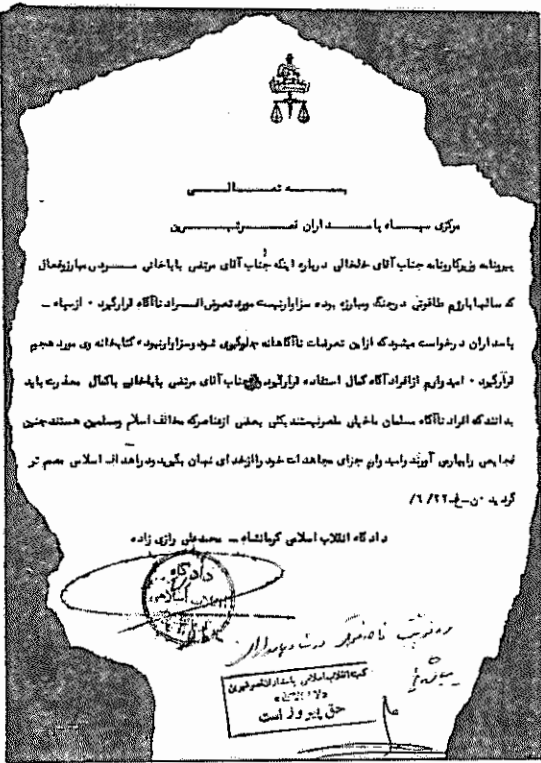 بسمه تعالی
مرکزی سپاه پاسداران قصرشیرین
پیرونامه وزیرکارونامه جناب آقای خلخالی درباره اینکه جناب آقای مرتضی باباخانی مردی مبارزوفعال
که سالها بارژم طاقوتی درجنگ ومبارزه بوده سزاوارنیست مورد تعرض افراد ناآگاه قرارگیرد ۰ ازسپاه -
پاسداران درخواست میشود که ازاین تعرضات ناآگاهانه جلوگیری شود وسزاوارنبود کتابخانه وی مورد هجم
قرارگیرد ۰ امیدواریم ازافراد آگاه کمال استفاده قرارگیرد جناب آقای مرتضی باباخانی باکمال معذرت باید
بدانند که افراد ناآگاه مسلمان ماخیلی مقصرنیستند بکلی بعضی ازعناصرکه مخالف اسلام ومسلمین هستند چنین
فجایعی رابباربی آورند وامیدواریم جزای مجاهدات خود راازخدای نهان بگیرید ودراهداف اسلامی مصمم تر
گردید ۰ن-غ-۶/۲۲/
دادگاه انقلاب اسلامی کرمانشاه - محمدعلی رازی زاده
دادگاه
انقلاب اسلامی
کمیته انقلاب اسلامی پاسداران قصرشیرین
حق پیروز است